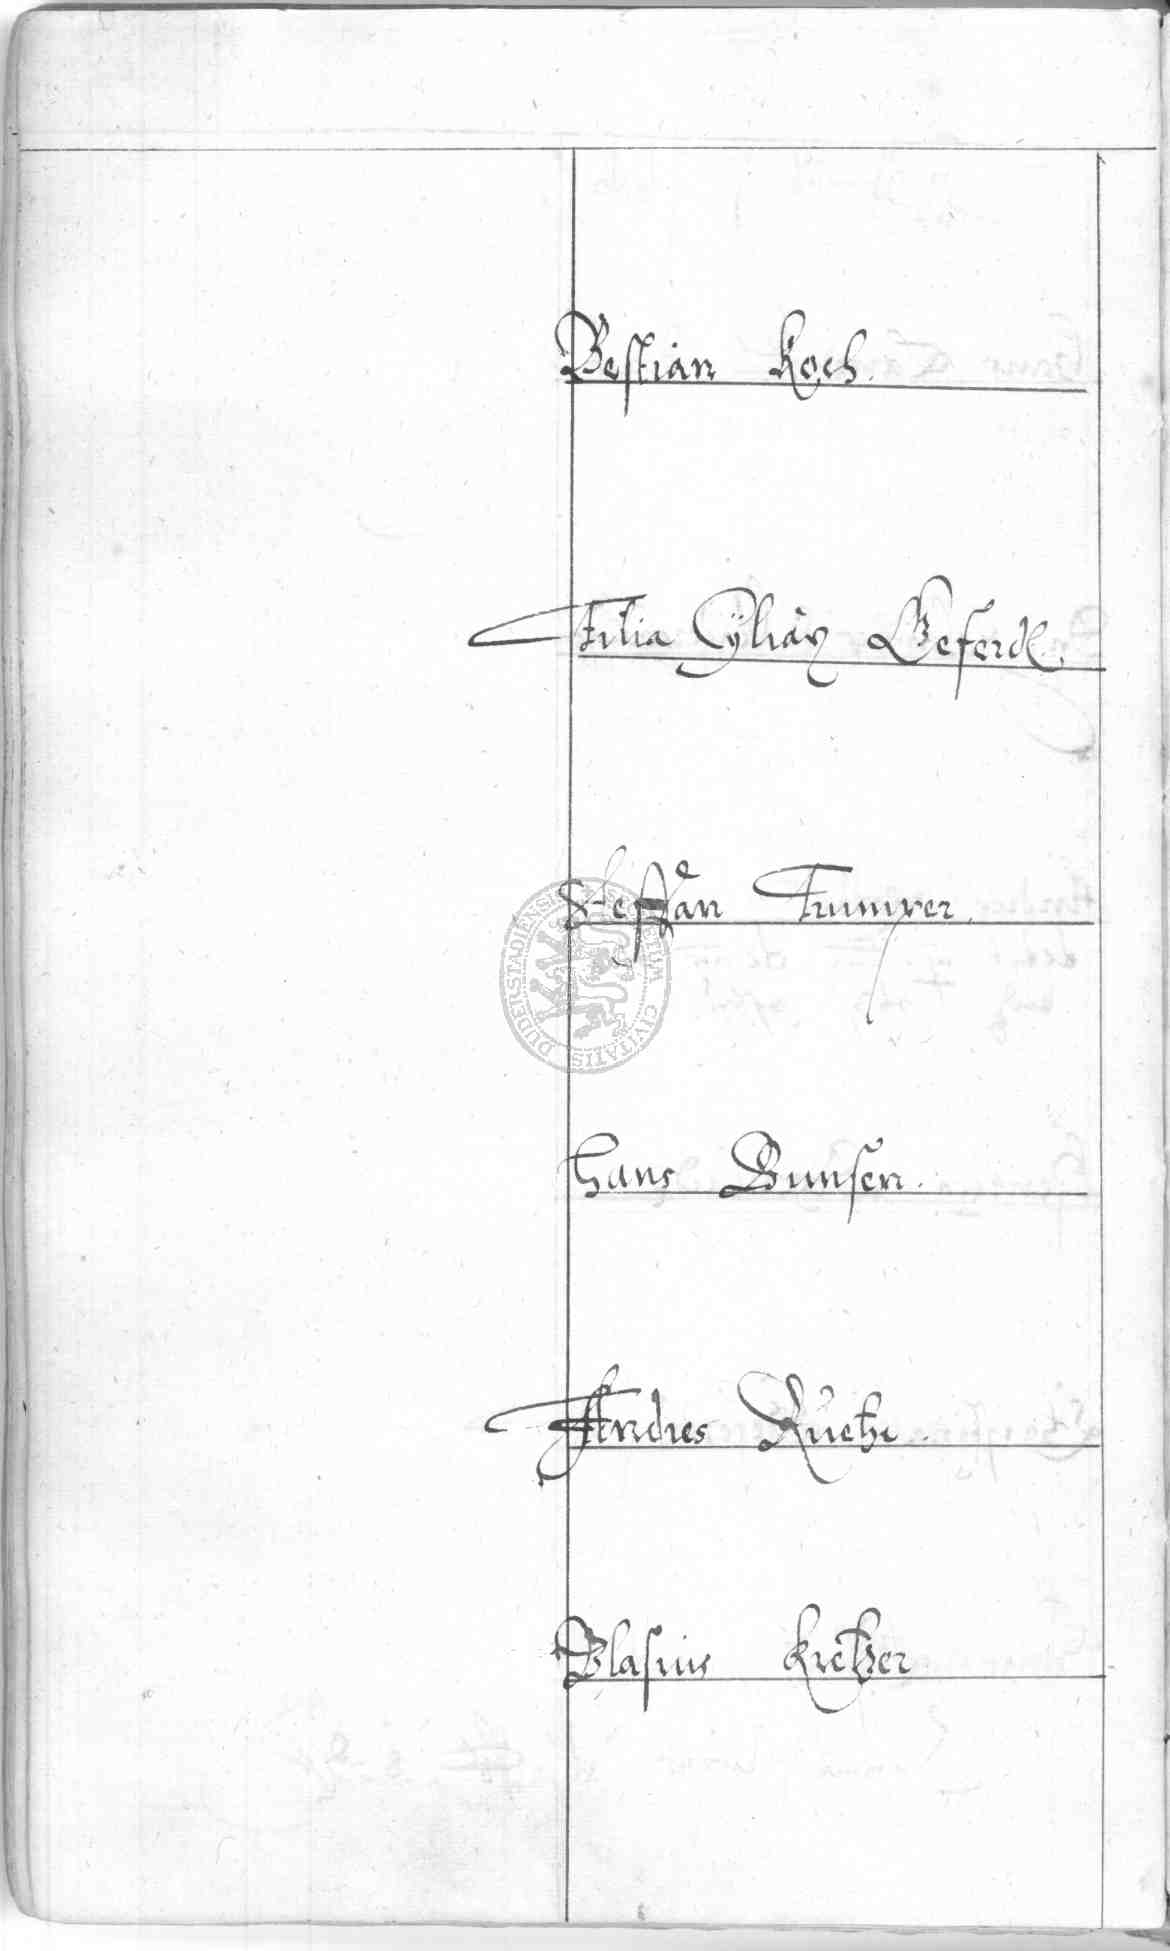 Bestian Koch.
Filia Cyliax Geferdt.
Steffan Trumper.
Hans Bunsen.
Andres
Blasius Kretzer
SIGILLUM CIVITATIS DUDERSTADIENSIS